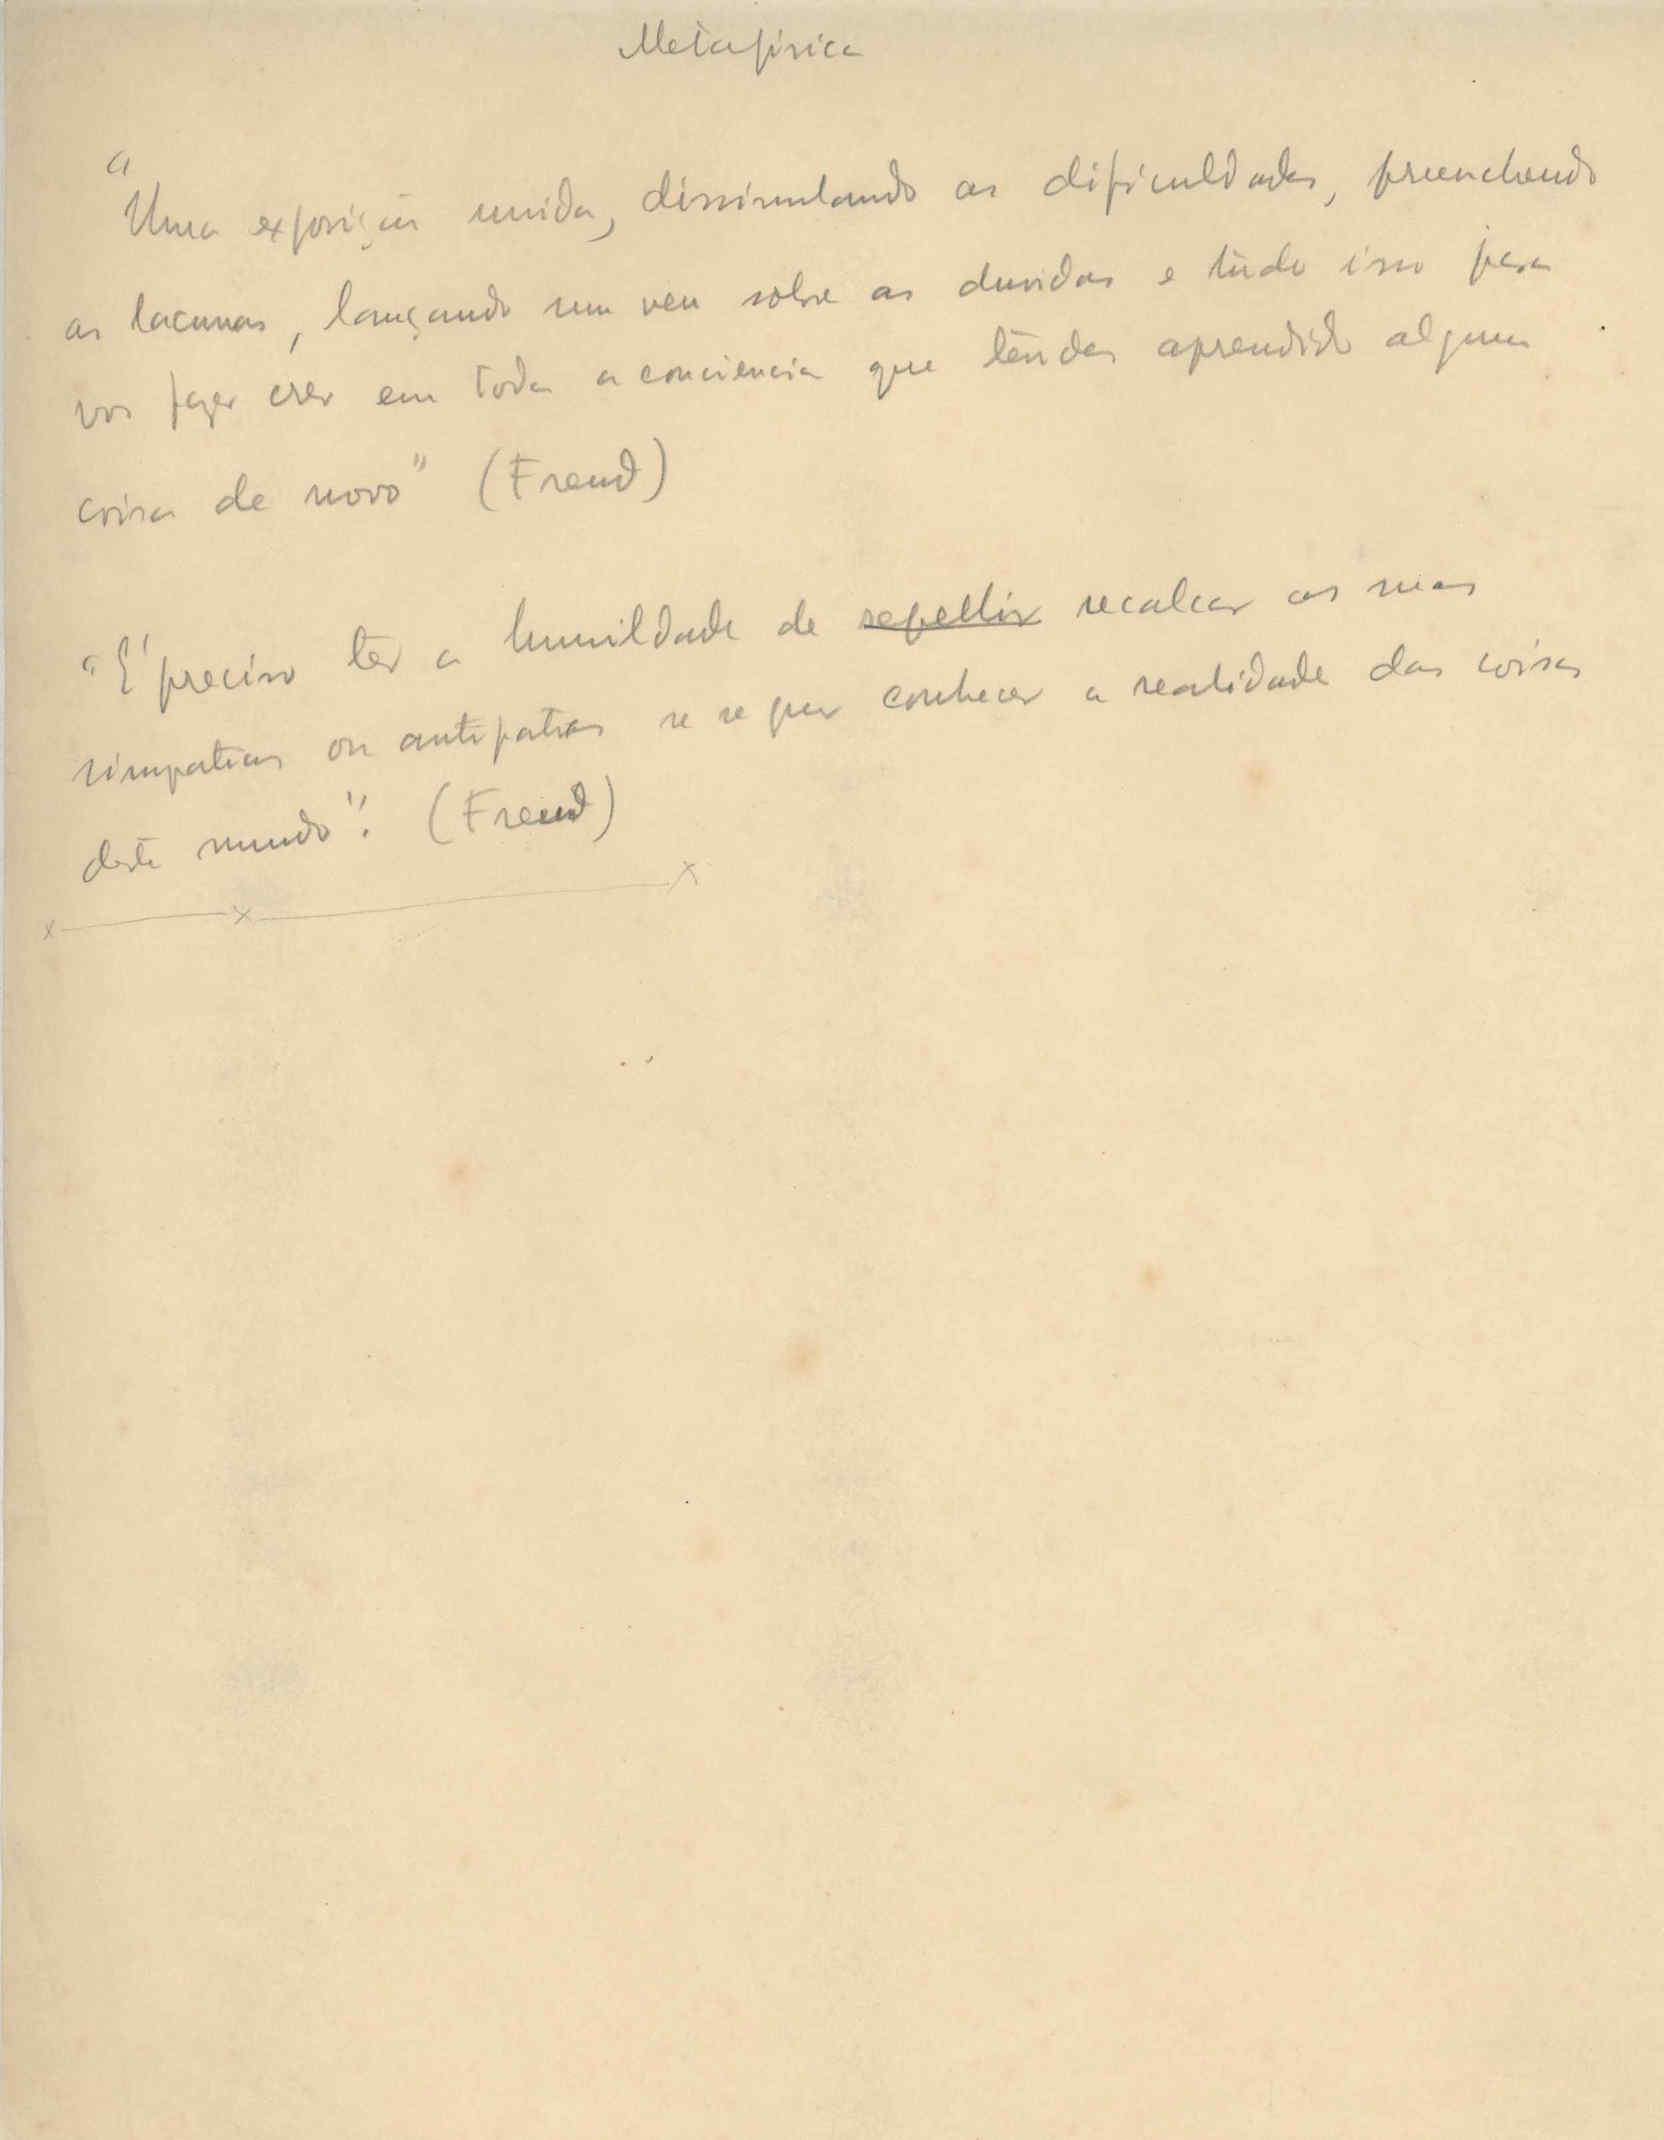 Metafisica
"Uma exposição unida, dissimulando as dificuldades, preenchendo
as lacunas, lançando um veu sobre as duvidas e tudo isso para
vos fazer crer em toda a conciencia que tendes aprendido alguma
coisa de novo" (Freud)
"É preciso ter a humildade de repellir recalcar as suas
simpatias ou antipatias se se quer conhecer a realidade das coisas
deste mundo". (Freud)
x x x